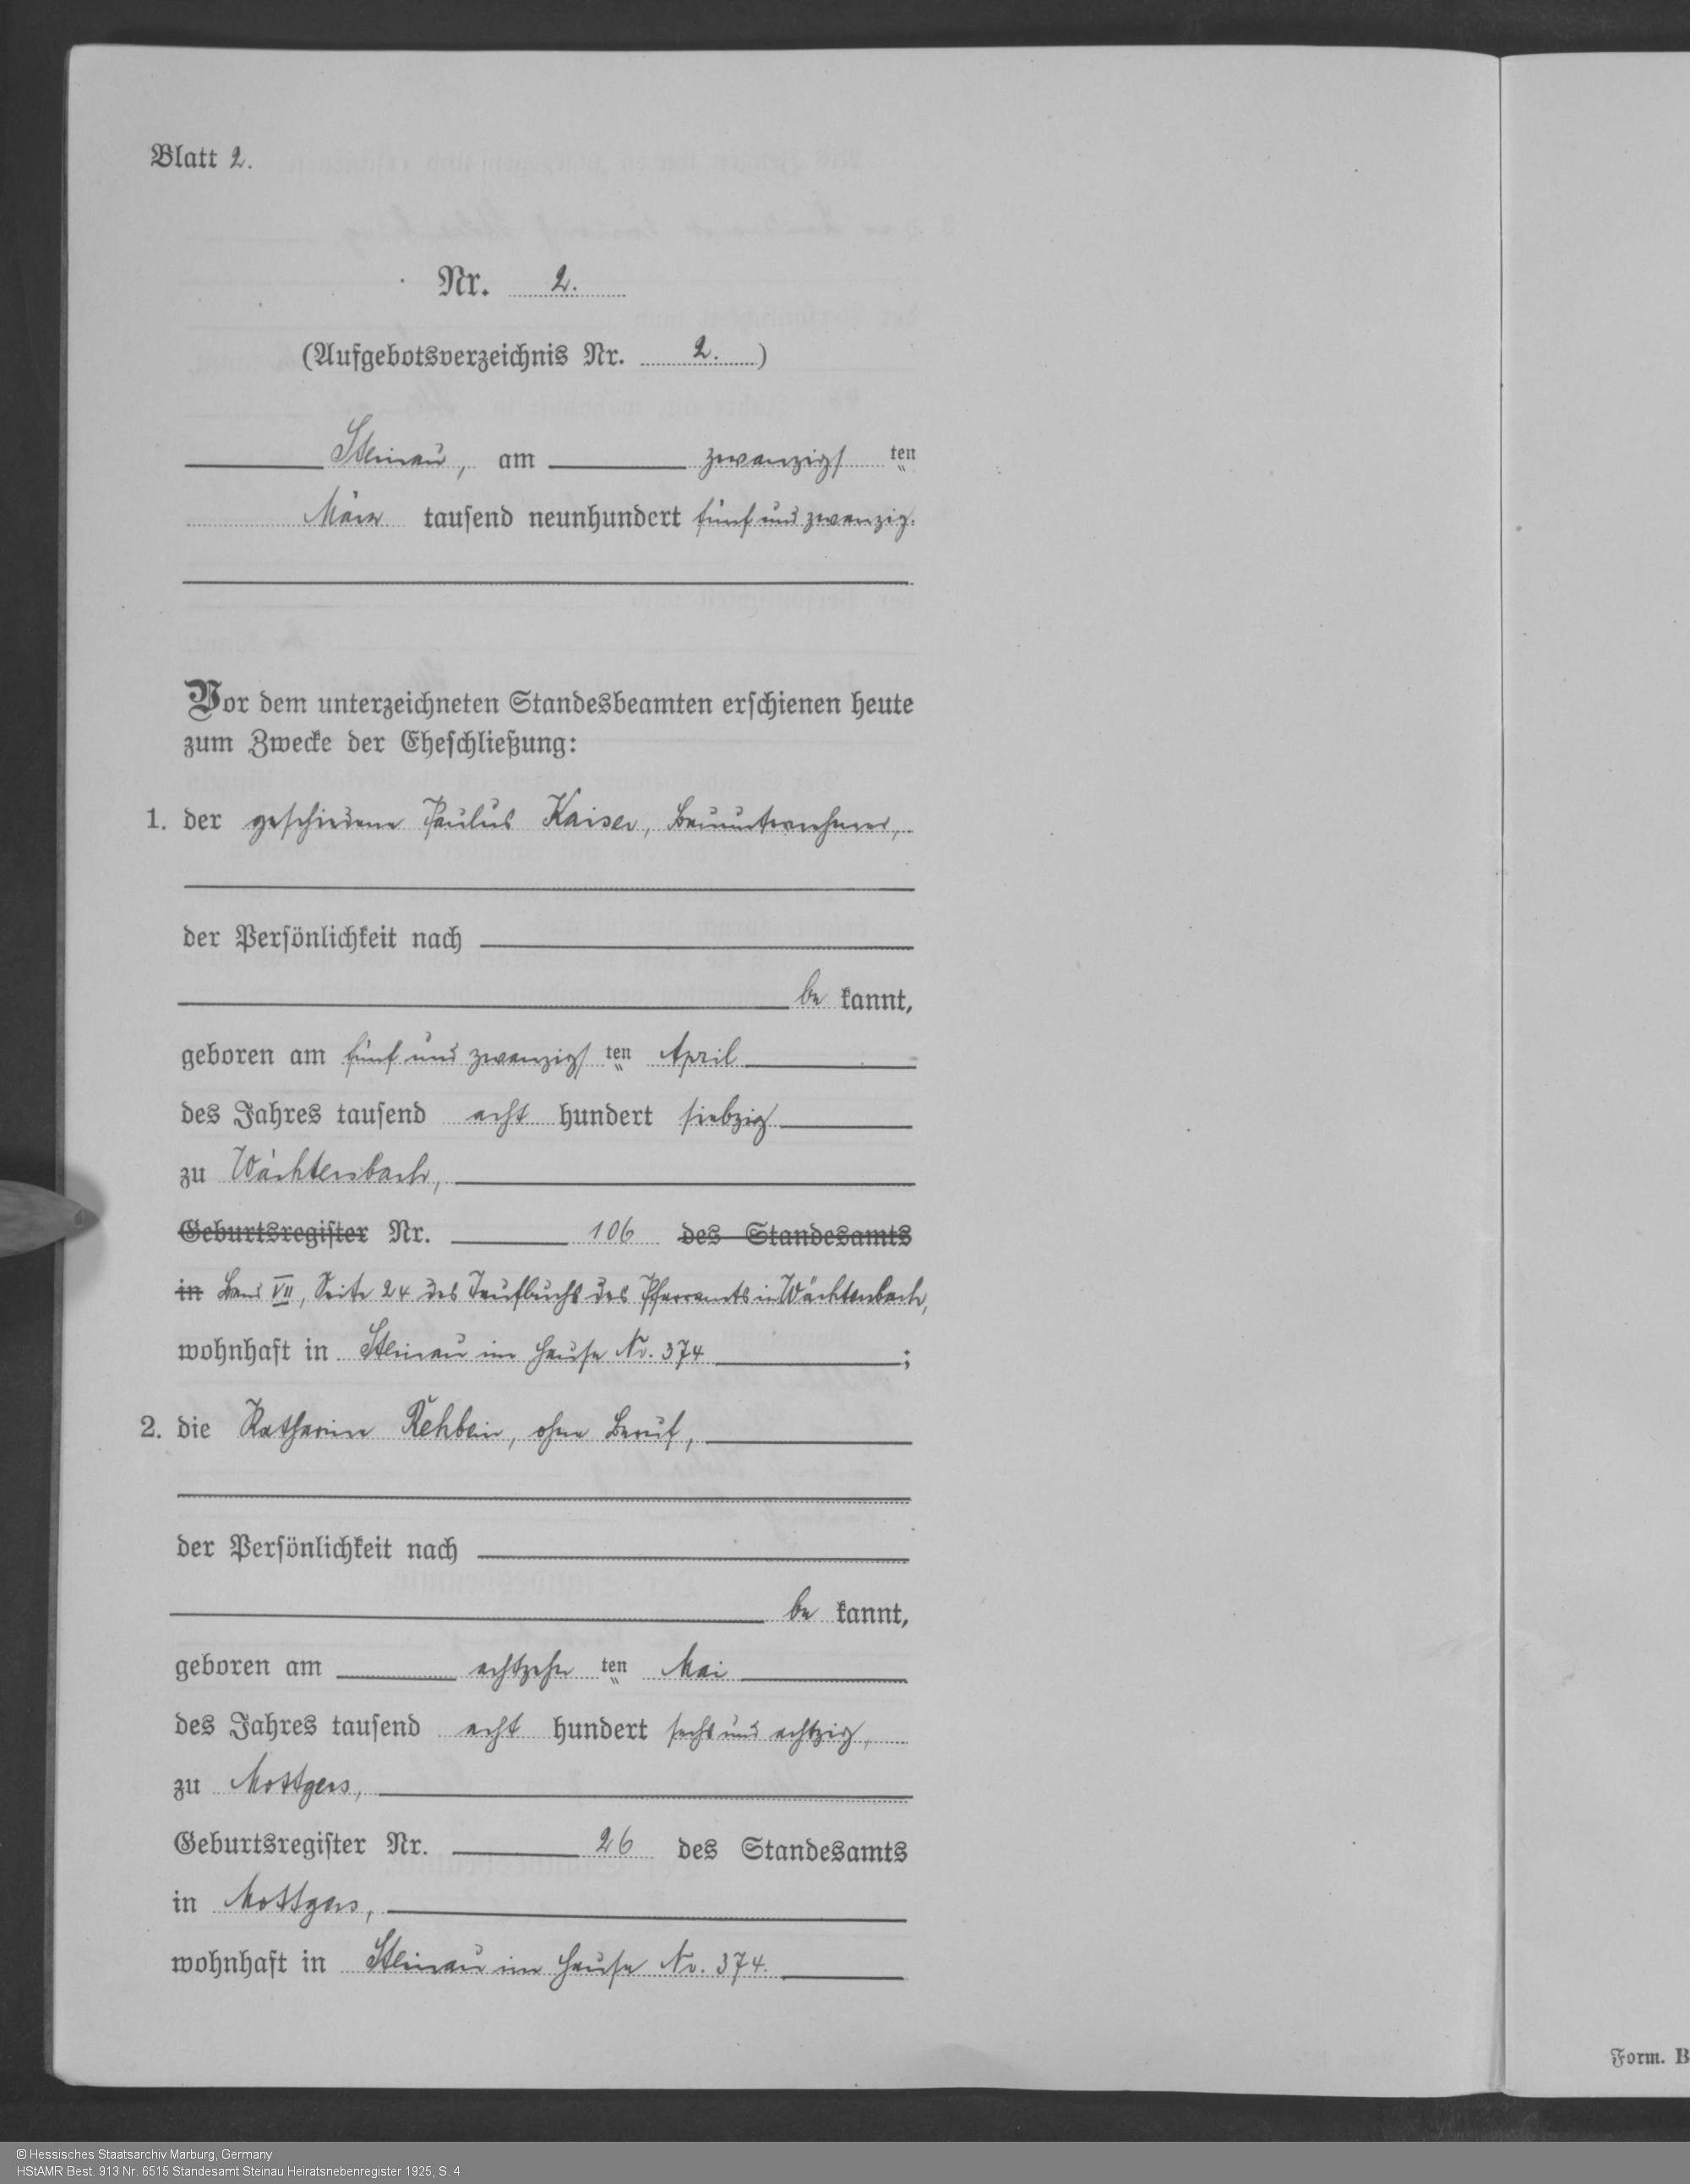 Blatt 2.
Nr. 2.
(Aufgebotsverzeichnis Nr. 2.)
Steinau, am zwanzigsten
März tausend neunhundert fünf und zwanzig.
Vor dem unterzeichneten Standesbeamten erschienen heute
zum Zwecke der Eheschließung:
1. der geschiedene Paulus Kaiser, Bauunternehmer,
der Persönlichkeit nach
be kannt,
geboren am fünf und zwanzigsten April
des Jahres tausend acht hundert siebzig
zu Wächtersbach,
Geburtsregister Nr. 106 des Standesamts
in Band VII, Seite 24 des Taufbuchs des Pfarramts in Wächtersbach,
wohnhaft in Steinau im Hause No. 374 ;
2. die Katharine Rehbein, ohne Beruf,
der Persönlichkeit nach
be kannt,
geboren am achtzehn ten Mai
des Jahres tausend acht hundert sechs und achtzig,
zu Mottgers,
Geburtsregister Nr. 26 des Standesamts
in Mottgers,
wohnhaft in Steinau im Hause No. 374.
Form. B
© Hessisches Staatsarchiv Marburg, Germany
HStAMR Best. 913 Nr. 6515 Standesamt Steinau Heiratsnebenregister 1925, S. 4